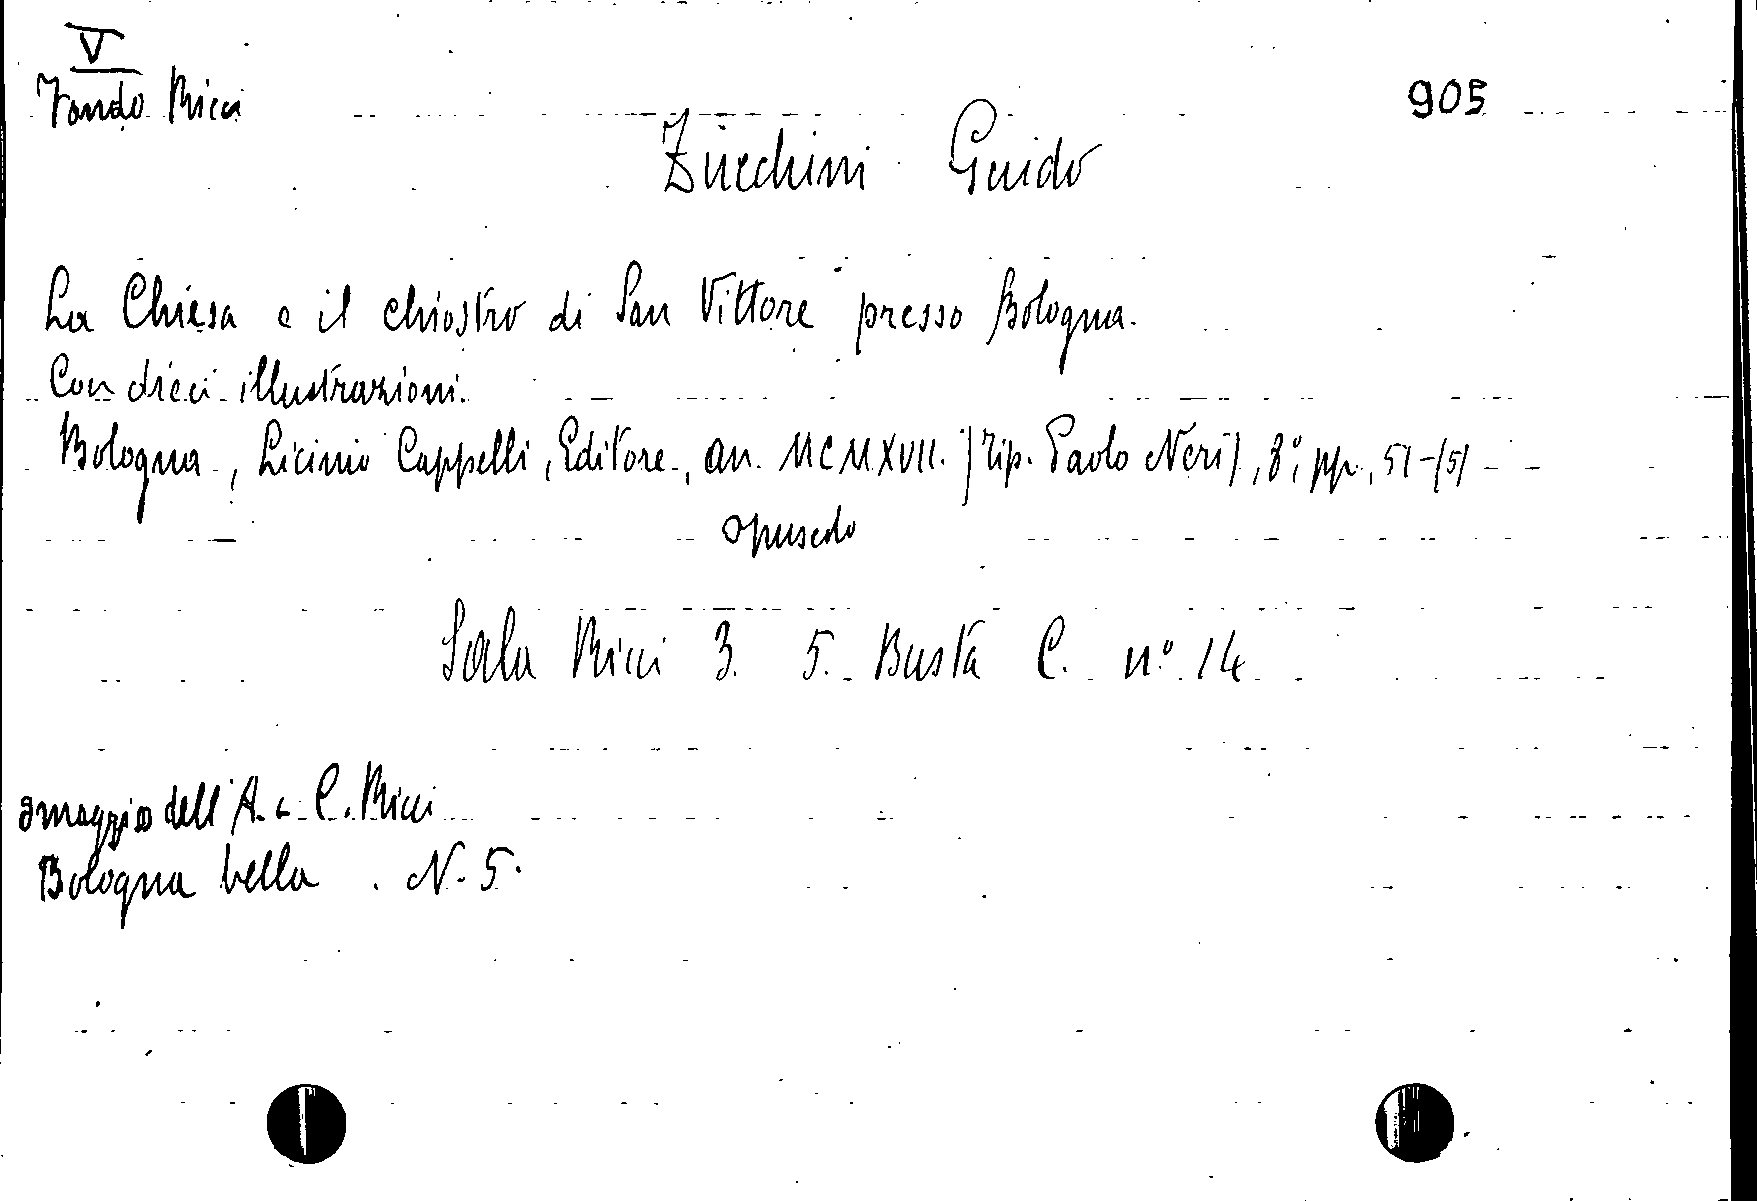 V
Fondo Ricci
905
Zucchini Guido
La Chiesa e il chiostro di San Vittore presso Bologna.
Con dieci illustrazioni.
Bologna, Licinio Cappelli, Editore, an. MCMXVII. (Tip. Paolo Neri), 8°, pp. 51-(5)
opuscolo
Sala Ricci 3. 5. Busta C. n° 14
omaggio dell'A. a C. Ricci
Bologna bella. N. 5.